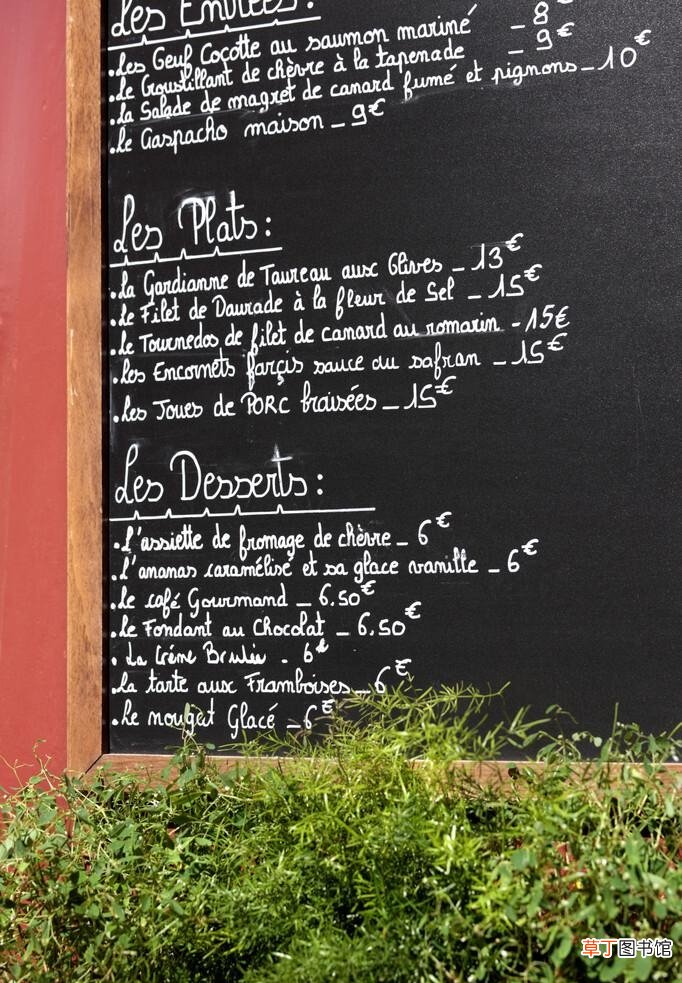 Les Entrées :
.Les Oeuf Coçotte au saumon mariné _ 8€
.Le Croustillant de chèvre à la tapenade _ 9€
.La Salade de magret de canard fumé et pignons _ 10€
.Le Gaspacho maison _ 9€
Les Plats :
.La Gardianne de Taureau aux Olives _ 13€
.Le Filet de Daurade à la fleur de Sel _ 15€
.Le Tournedos de filet de canard au romarin - 15€
.Les Encornets farçis sauce au safran _ 15€
.Les Joues de PORC braisées _ 15€
Les Desserts :
.L'assiette de fromage de chèvre _ 6€
.L'ananas caramélisé et sa glace vanille _ 6€
.Le café Gourmand _ 6.50€
.Le Fondant au Chocolat _ 6.50€
. La Crème Brulée . 6€
.La tarte aux Framboises _ 6€
.Le nougat Glacé _ 6€
草丁图书馆